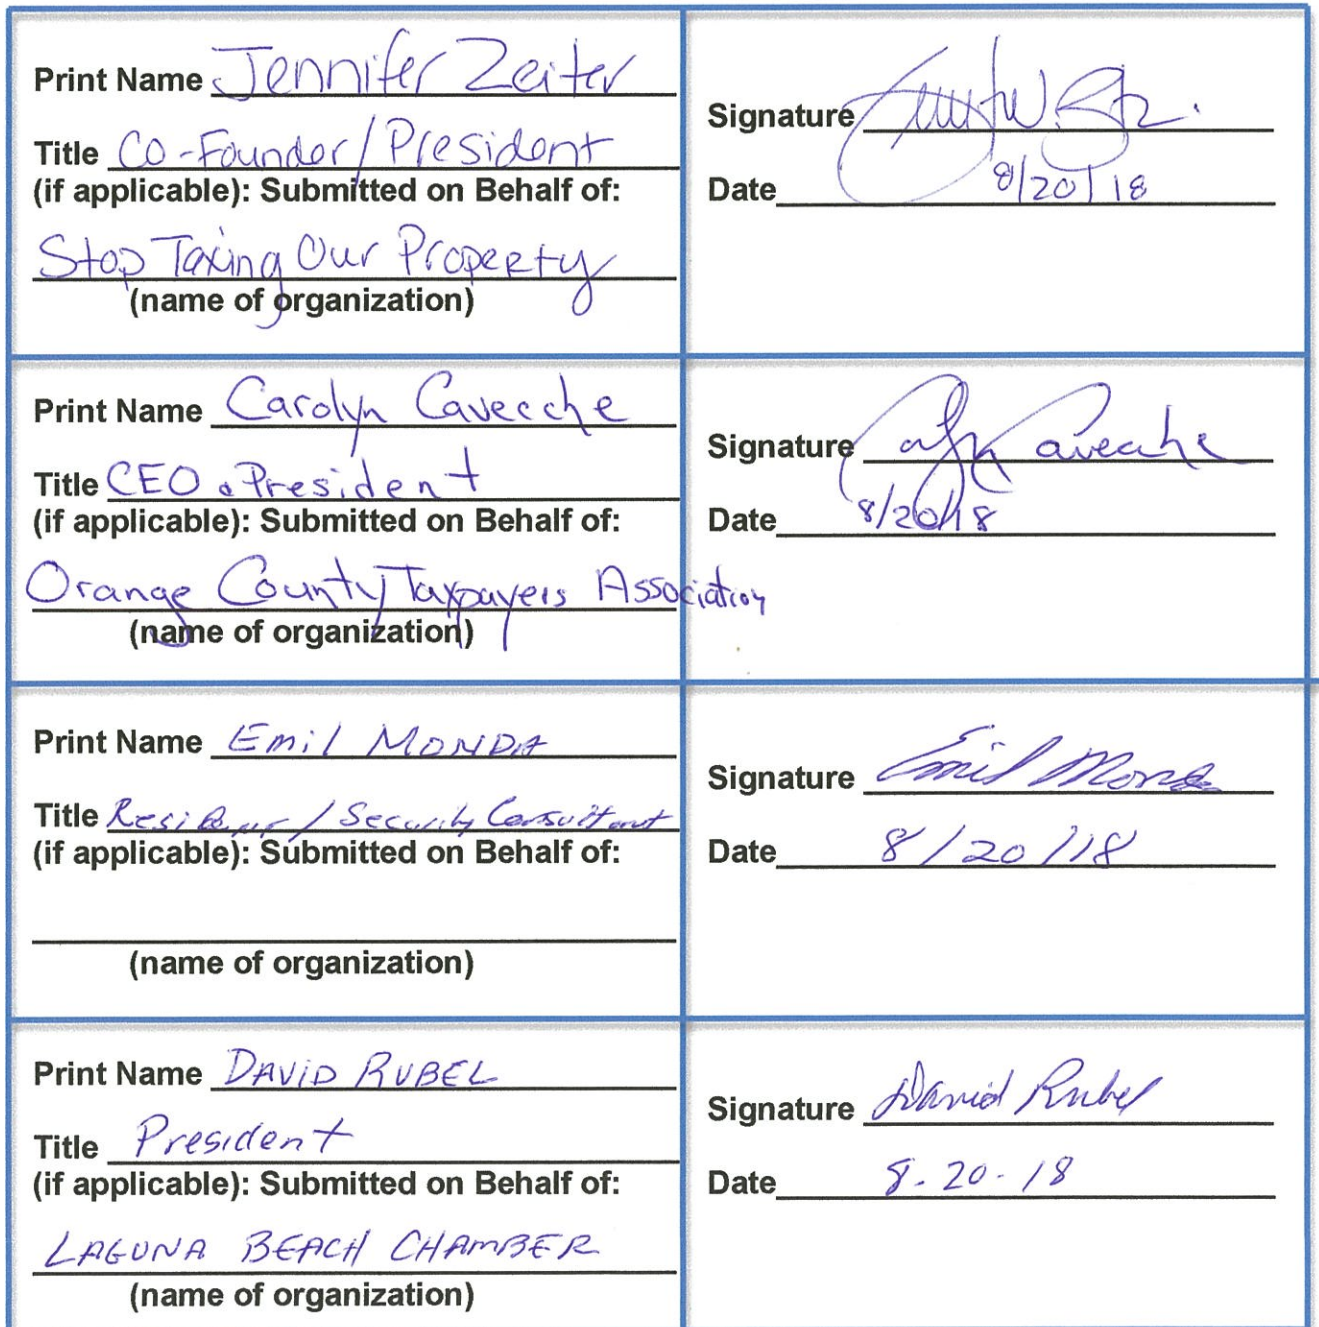 Print Name Jennifer Zeiter
Title CO-Founder/President
(if applicable): Submitted on Behalf of:
Stop Taxing Our Property
(name of organization)
Signature
Date 8/20/18
Print Name Carolyn Cavecche
Title CEO & President
(if applicable): Submitted on Behalf of:
Orange County Taxpayers Association
(name of organization)
Signature Carolyn Cavecche
Date 8/20/18
Print Name Emil MONDA
Title Resident / Security Consultant
(if applicable): Submitted on Behalf of:
(name of organization)
Signature Emil Monda
Date 8/20/18
Print Name DAVID RUBEL
Title President
(if applicable): Submitted on Behalf of:
LAGUNA BEACH CHAMBER
(name of organization)
Signature David Rubel
Date 8-20-18